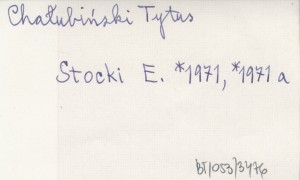 Chałubiński Tytus
Stocki E. *1971, *1971 a
BT/053/3476